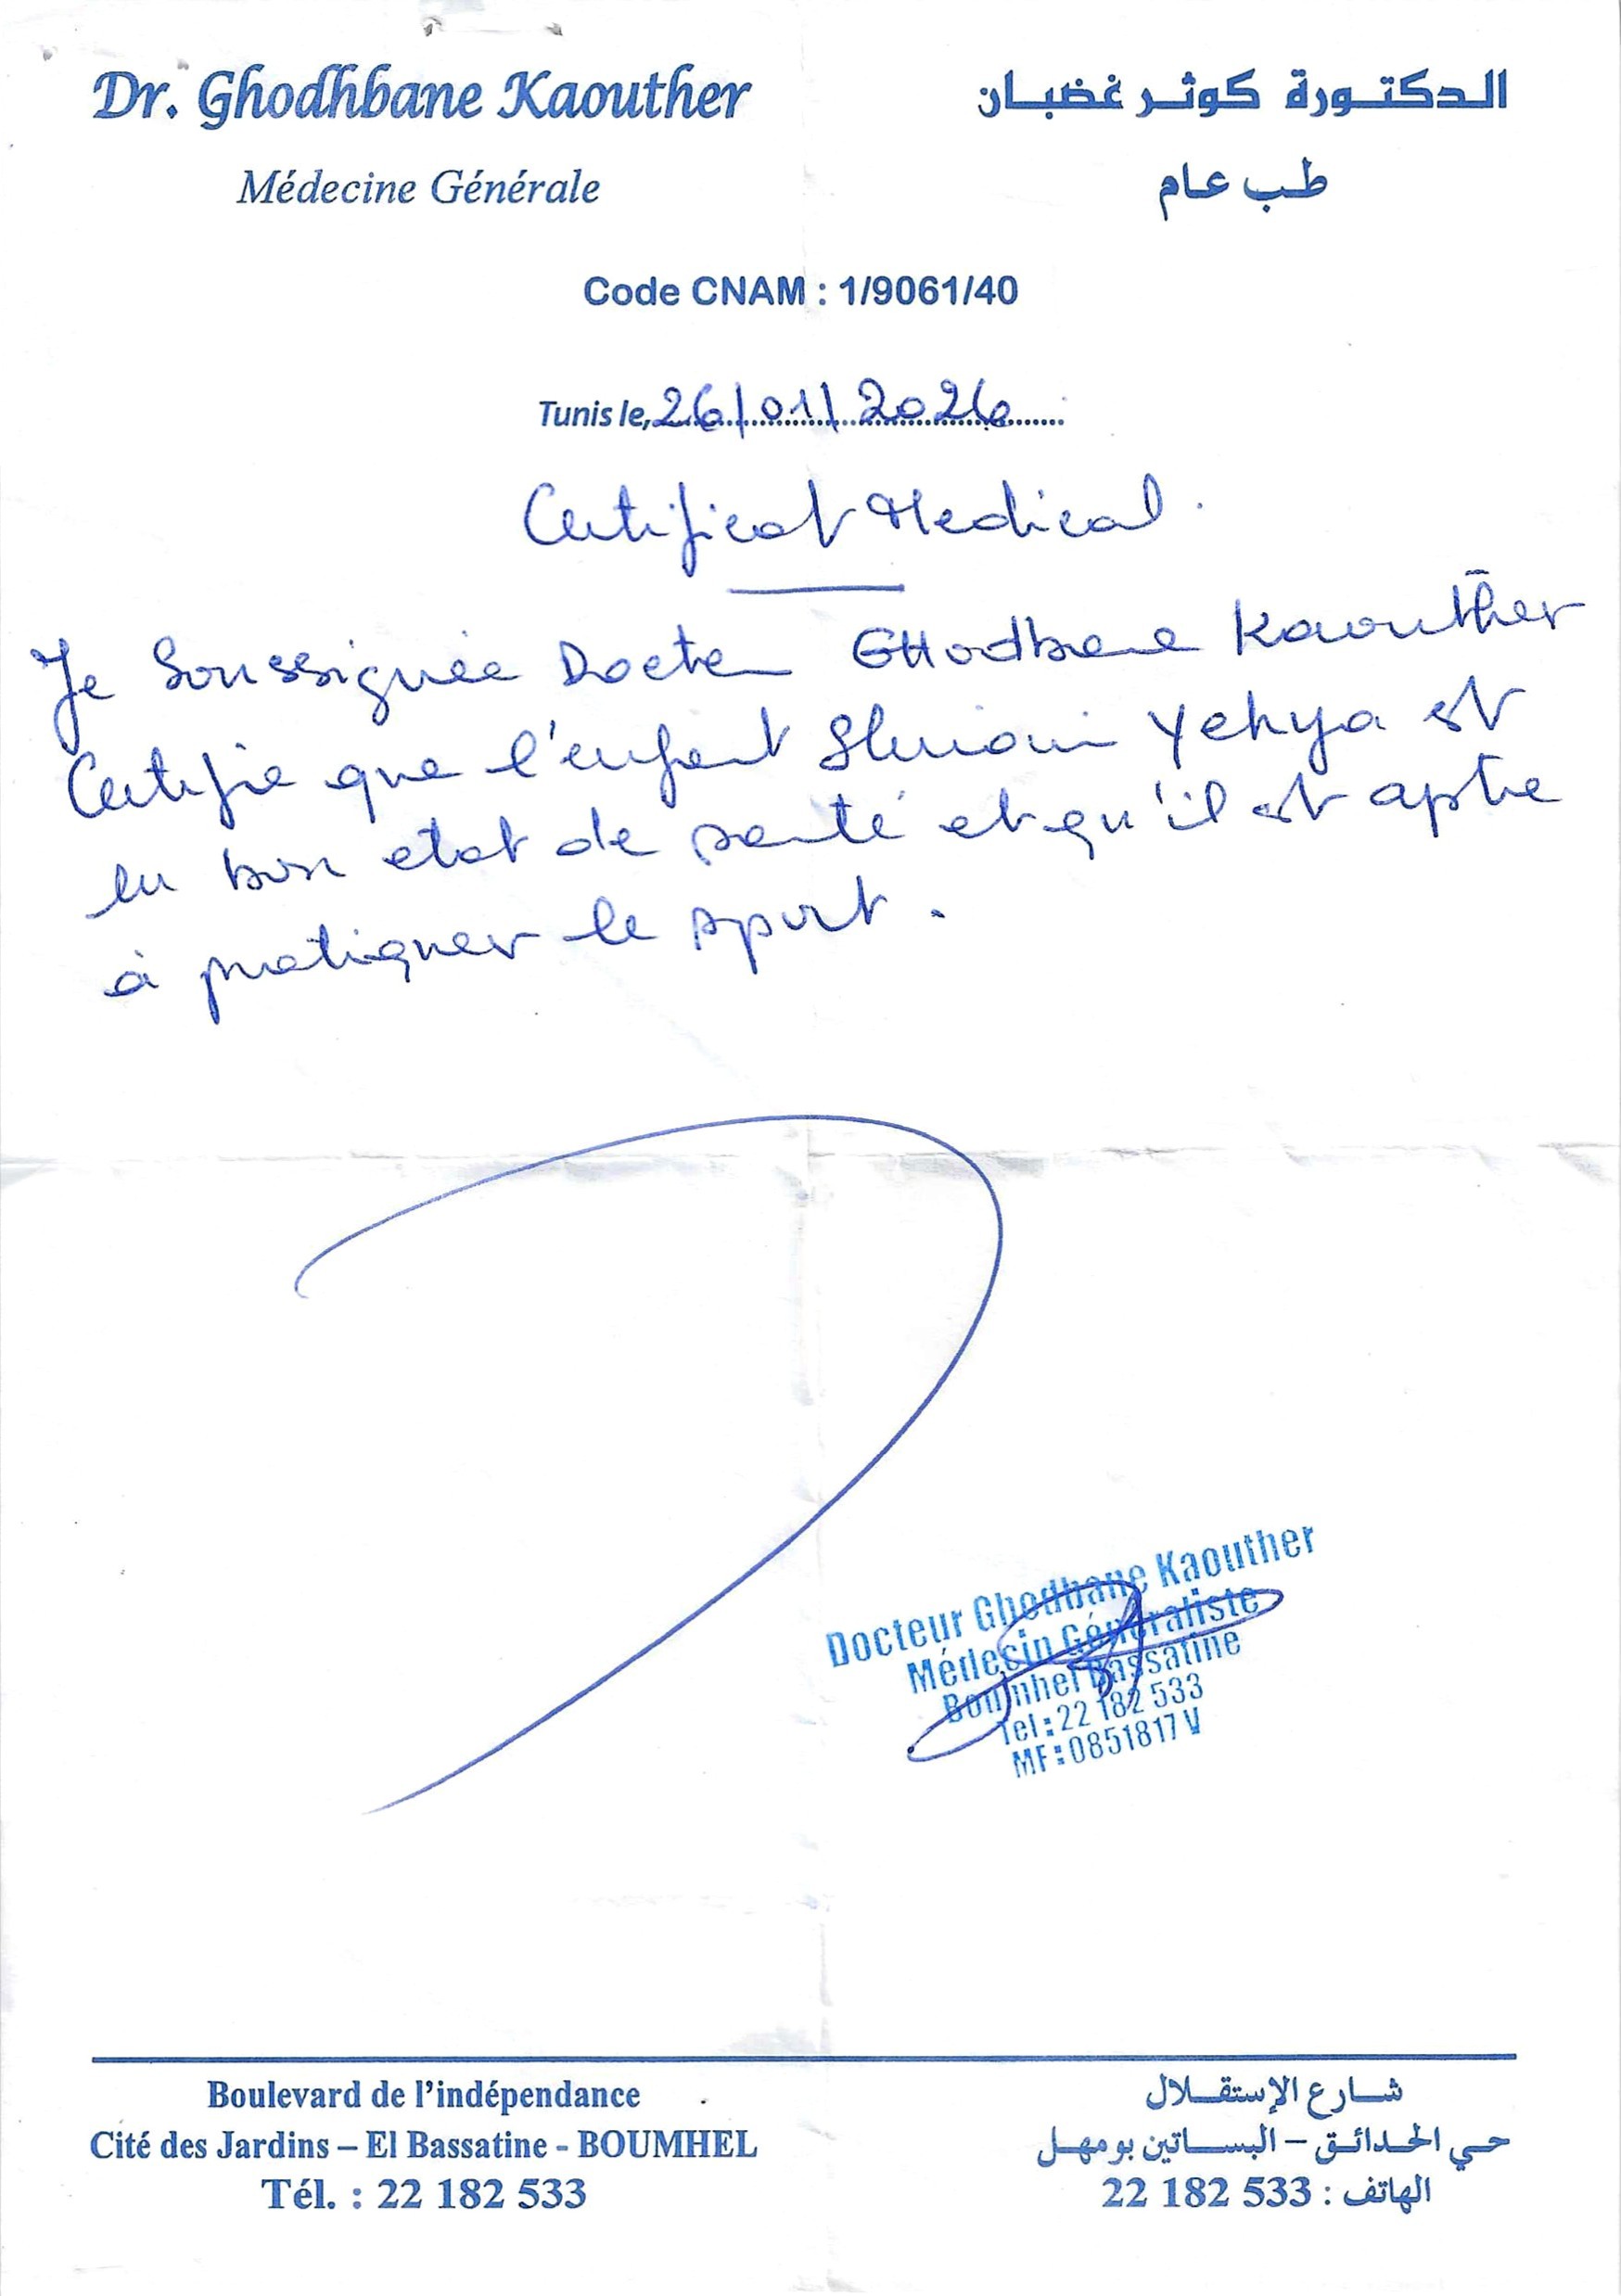 Dr. Ghodhbane Kaouther
الدكتورة كوثر غضبان
Médecine Générale
طب عام
Code CNAM : 1/9061/40
Tunis le, 26/01/2026
Certificat Medical.
Je Soussignée Docteur GHodbane Kaouther
Certifie que l'enfant Yehya est
en bon etat de santé et qu'il est apte
à pratiquer le sport.
Docteur Ghodbane Kaouther
Médecin Généraliste
Boumhel Bassatine
Tel : 22 182 533
MF : 0851817 V
Boulevard de l'indépendance
Cité des Jardins – El Bassatine - BOUMHEL
Tél. : 22 182 533
شارع الإستقلال
حي الحدائق – البساتين بومهل
الهاتف : 533 182 22